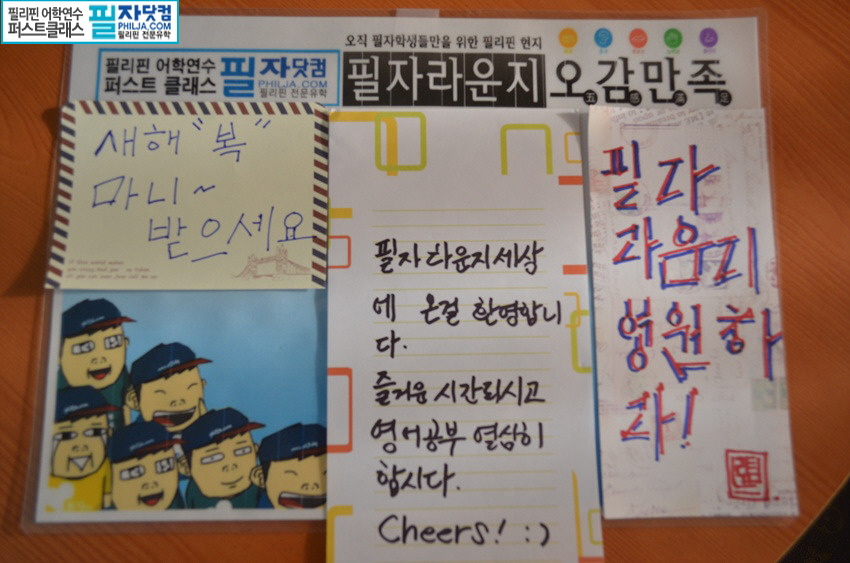 필리핀 어학연수
퍼스트클래스
필자닷컴
PHILJA.COM
필리핀 전문유학
오직 필자학생들만을 위한 필리핀 현지
필리핀 어학연수
퍼스트 클래스
필자닷컴
PHILJA.COM
필리핀 전문유학
필자라운지 오감만족
새해 "복"
마니~
받으세요
필자라운지세상
에 온걸 환영합니
다.
즐거운 시간되시고
영어공부 열심히
합시다.
Cheers! :)
필자
라운지
영원하
라!